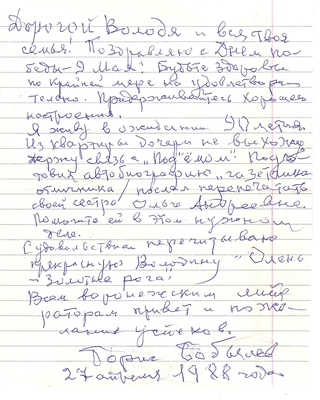 Дорогой Володя и вся твоя
семья! Поздравляю с Днем по-
беды - 9 Мая! Будьте здоровы
по крайней мере на удовлетвори-
тельно. Придерживайтесь хорошего
настроения.
Я живу в ожидании 90 летия
Из квартиры дочери не выхожу
держу связь с "Подъёмом". Подго-
товил автобиографию "газетчика
отличника, послал перепечатать
своей сестре Ольге Андреевне.
Помогите ей в этом нужном
деле.
С удовольствием перечитываю
прекрасную Володину "Олень
- золотые рога".
Всем воронежским лите-
раторам привет и поже-
лания успехов.
Борис Бобылев
27 апреля 1988 года